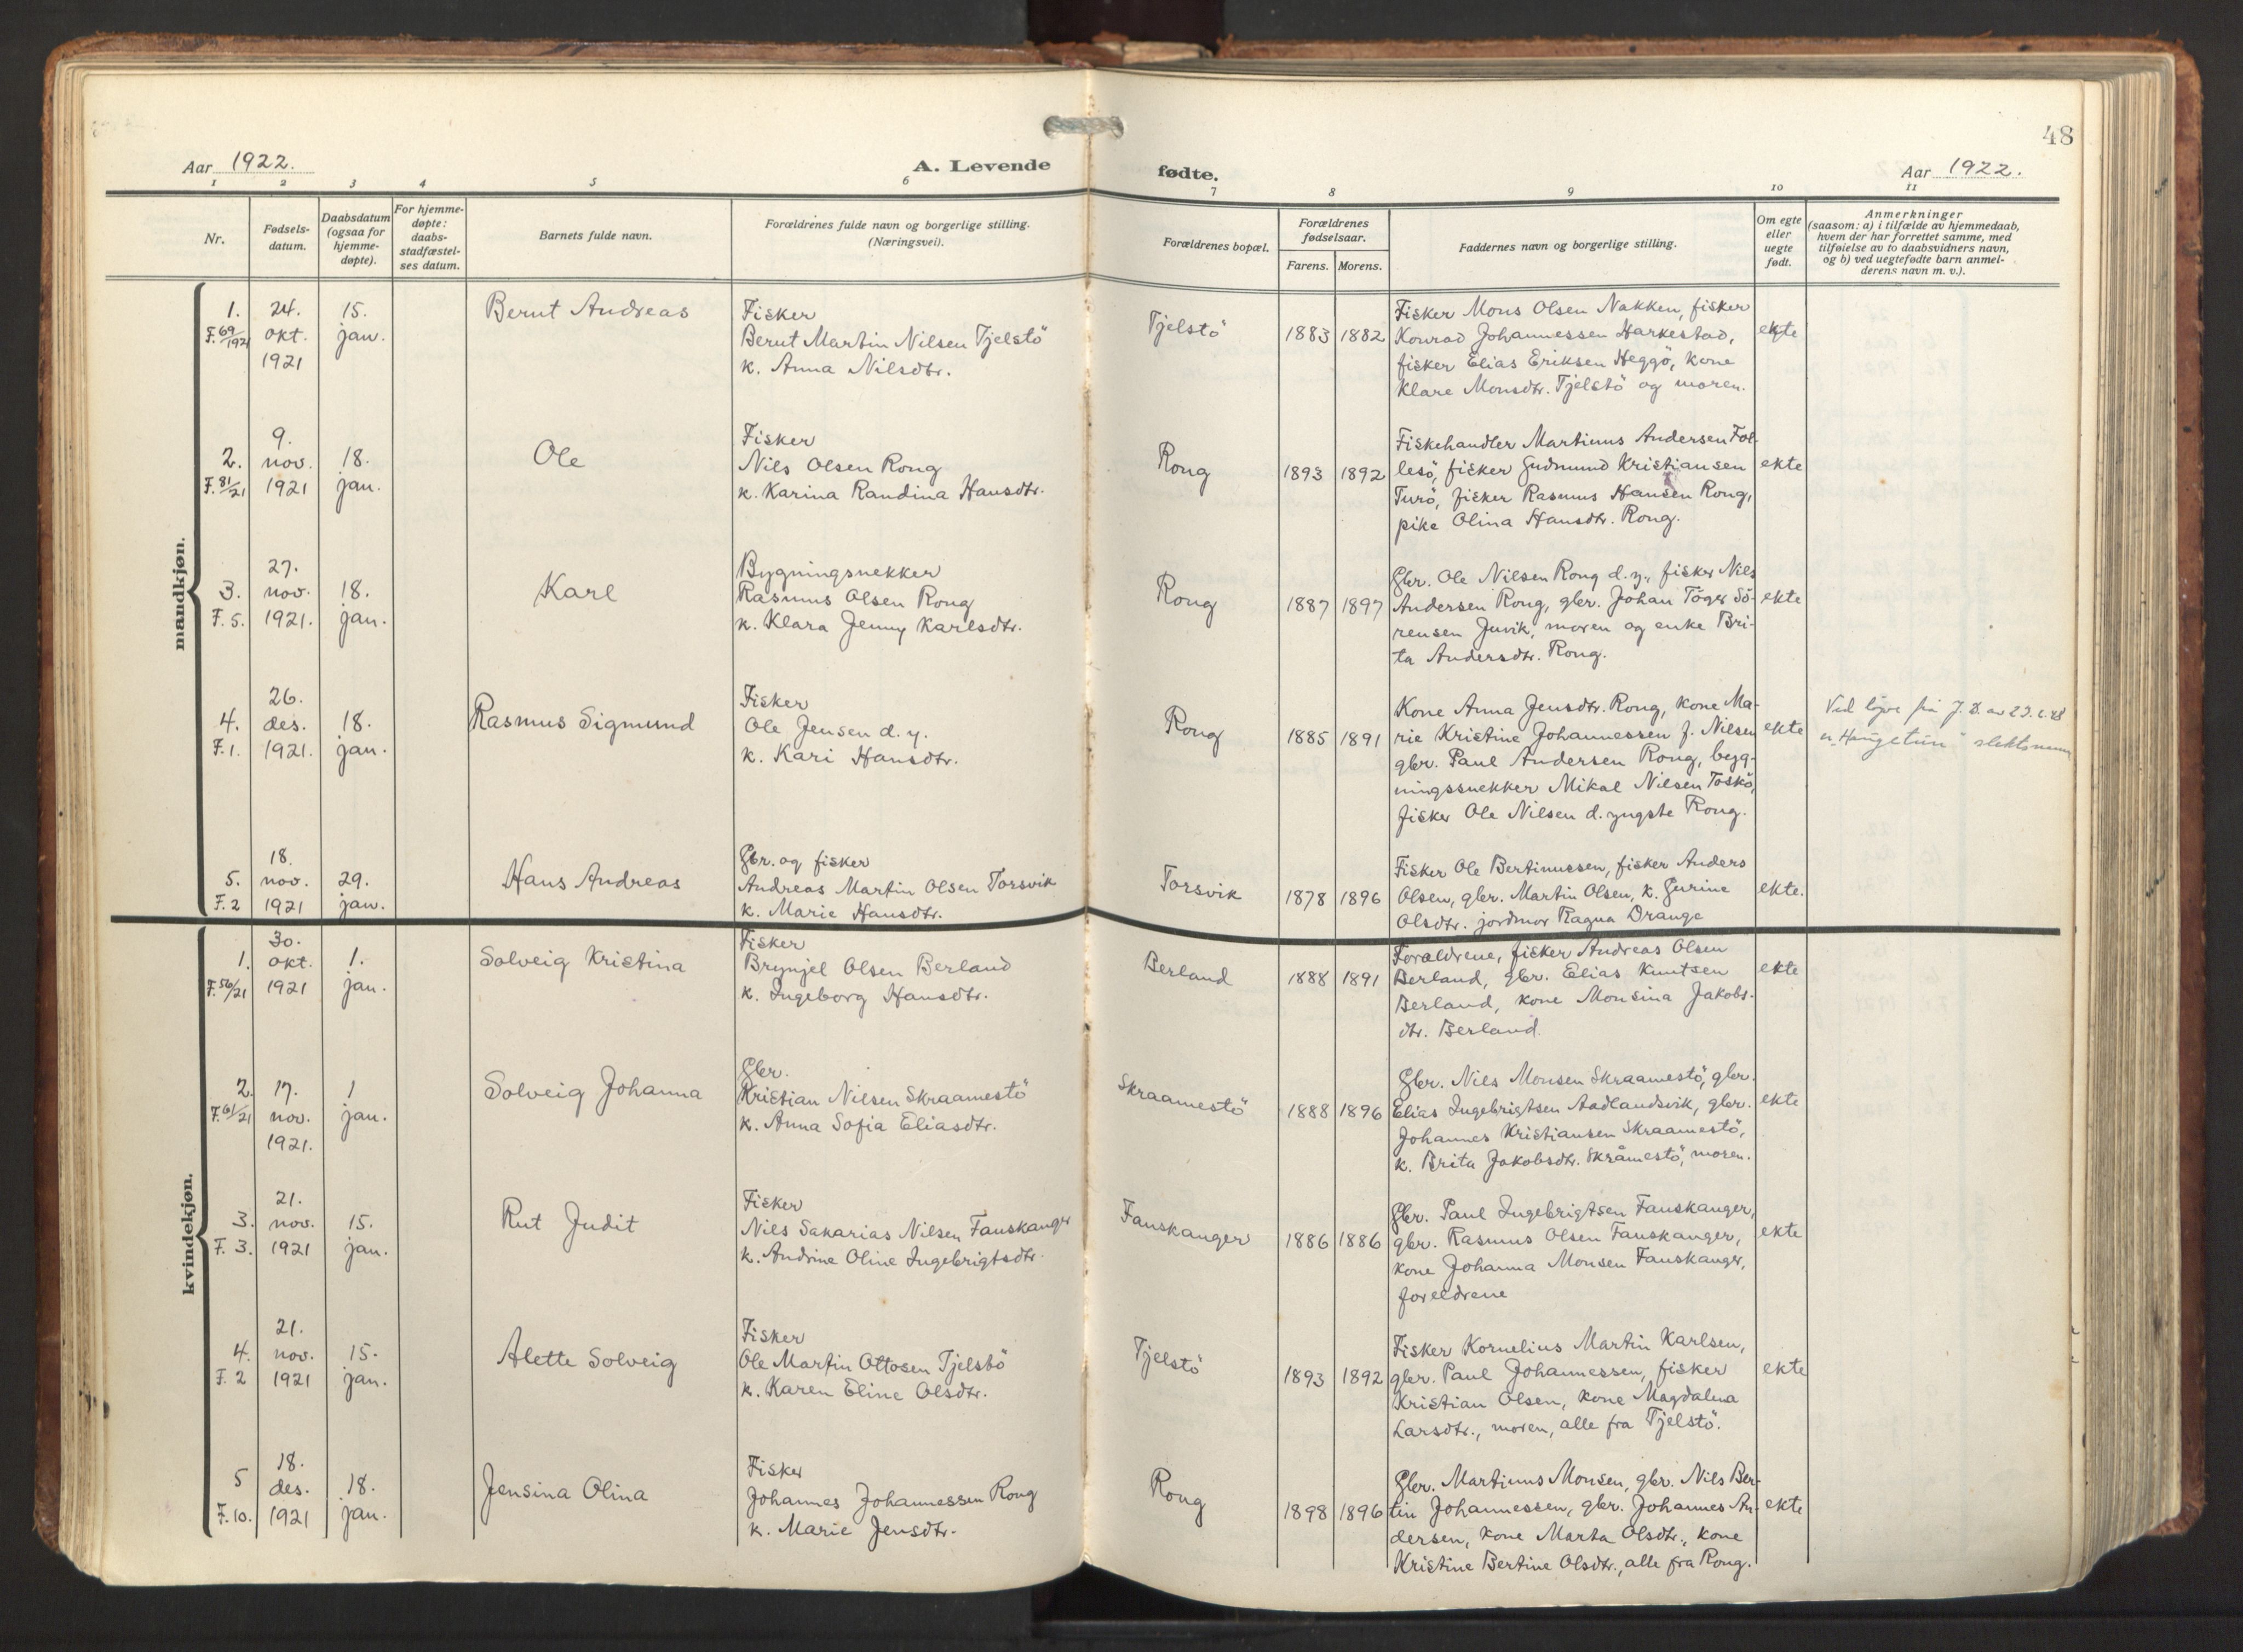 48
Aar 1922.
A. Levende
fødte.
Aar 1922.
1 2 3 4 5 6 7 8 9 10 11
Nr.
Fødsels-
datum.
Daabsdatum
(ogsaa for
hjemme-
døpte).
For hjemme-
døpte:
daabs-
stadfæstel-
ses datum.
Barnets fulde navn.
Forældrenes fulde navn og borgerlige stilling.
(Næringsvei).
Forældrenes bopæl.
Forældrenes
fødselsaar.
Farens. Morens.
Faddernes navn og borgerlige stilling.
Om egte
eller
uegte
født.
Anmerkninger
(saasom: a) i tilfælde av hjemmedaab,
hvem der har forrettet samme, med
tilføielse av to daabsvidners navn,
og b) ved uegtefødte barn anmel-
derens navn m. v.).
mandkjøn.
1.
F. 69/1921
24.
okt.
1921
15.
jan.
Bernt Andreas
Fisker
Bernt Martin Nilsen Tjelstö
k. Anna Nilsdtr.
Tjelstö
1883 1882
Fisker Mons Olsen Nakken, fisker
Konrad Johannessen Harkestad,
fisker Elias Eriksen Heggö, kone
Klare Monsdtr. Tjelstö og moren.
ekte
2.
F. 81/21
9.
nov.
1921
18.
jan.
Ole
Fisker
Nils Olsen Rong
k. Karina Randina Hansdtr.
Rong
1893 1892
Fiskehandler Martinus Andersen Fol-
lesö, fisker Gudmund Kristiansen
Turö, fisker Rasmus Hansen Rong,
pike Olina Hansdtr. Rong.
ekte
3.
F. 5.
27.
nov.
1921.
18.
jan.
Karl
Bygningsnekker
Rasmus Olsen Rong
k. Klara Jenny Karlsdtr.
Rong
1887 1897
Gbr. Ole Nilsen Rong d. y., fisker Nils
Andersen Rong, gbr. Johan Töger Sö-
rensen Juvik, moren og enke Bri-
ta Andersdtr. Rong.
ekte
4.
F. 1.
26.
des.
1921.
18.
jan.
Rasmus Sigmund
Fisker
Ole Jensen d. y.
k. Kari Hansdtr.
Rong
1885 1891
Kone Anna Jensdtr. Rong, kone Ma-
rie Kristine Johannessen f. Nilsen
gbr. Paul Andersen Rong, byg-
ningssnekker Mikal Nilsen Toskö,
fisker Ole Nilsen d. yngste Rong.
ekte
Ved fra J. D. av
"Haugetun" slektsnavn
5.
F. 2
18.
nov.
1921
29.
jan.
Hans Andreas
Gbr. og fisker
Andreas Martin Olsen Torsvik
k. Marie Hansdtr.
Torsvik
1878 1896
Fisker Ole Bertinussen, fisker Anders
Olsen, gbr. Martin Olsen, k. Gurine
Olsdtr. jordmor Ragna Drange
ekte.
kvindekjøn.
1.
F. 56/21
30.
okt.
1921
1.
jan.
Solveig Kristina
Fisker
Brynjel Olsen Berland
k. Ingeborg Hansdtr.
Berland
1888 1891
Forældrene, fisker Andreas Olsen
Berland, gbr. Elias Knutsen
Berland, kone Monsina Jakobs-
dtr. Berland.
ekte
2.
F. 61/21
17.
nov.
1921.
1
jan.
Solveig Johanna
Gbr.
Kristian Nilsen Skraamestö
k. Anna Sofia Eliasdtr.
Skraamestö
1888 1896
Gbr. Nils Monsen Skraamestö, gbr.
Elias Ingebrigtsen Aadlandsvik, gbr.
Johannes Kristiansen Skraamestö,
k. Brita Jakobsdtr. Skråmestö, moren.
ekte
3.
F. 3.
21.
nov.
1921
15.
jan.
Rut Judit
Fisker
Nils Sakarias Nilsen Fauskanger
k. Andrine Oline Ingebrigtsdtr.
Fauskanger
1886 1886
Gbr. Paul Ingebrigtsen Fauskanger,
gbr. Rasmus Olsen Fauskanger,
kone Johanna Monsen Fauskanger,
foreldrene
ekte
4.
F. 2
21.
nov.
1921
15.
jan.
Alette Solveig
Fisker
Ole Martin Ottosen Tjelstö
k. Karen Eline Olsdtr.
Tjelstö
1893 1892
Fisker Kornelius Martin Karlsen,
gbr. Paul Johannessen, fisker
Kristian Olsen, kone Magdalena
Larsdtr., moren, alle fra Tjelstö.
ekte
5
F. 10.
18.
des.
1921
18.
jan.
Jensina Olina
Fisker
Johannes Johannessen Rong
k. Marie Jensdtr.
Rong
1898 1896
Gbr. Martinus Monsen, gbr. Nils Ber-
tin Johannessen, gbr. Johannes An-
dersen, kone Marta Olsdtr., kone
Kristine Bertine Olsdtr., alle fra Rong.
ekte